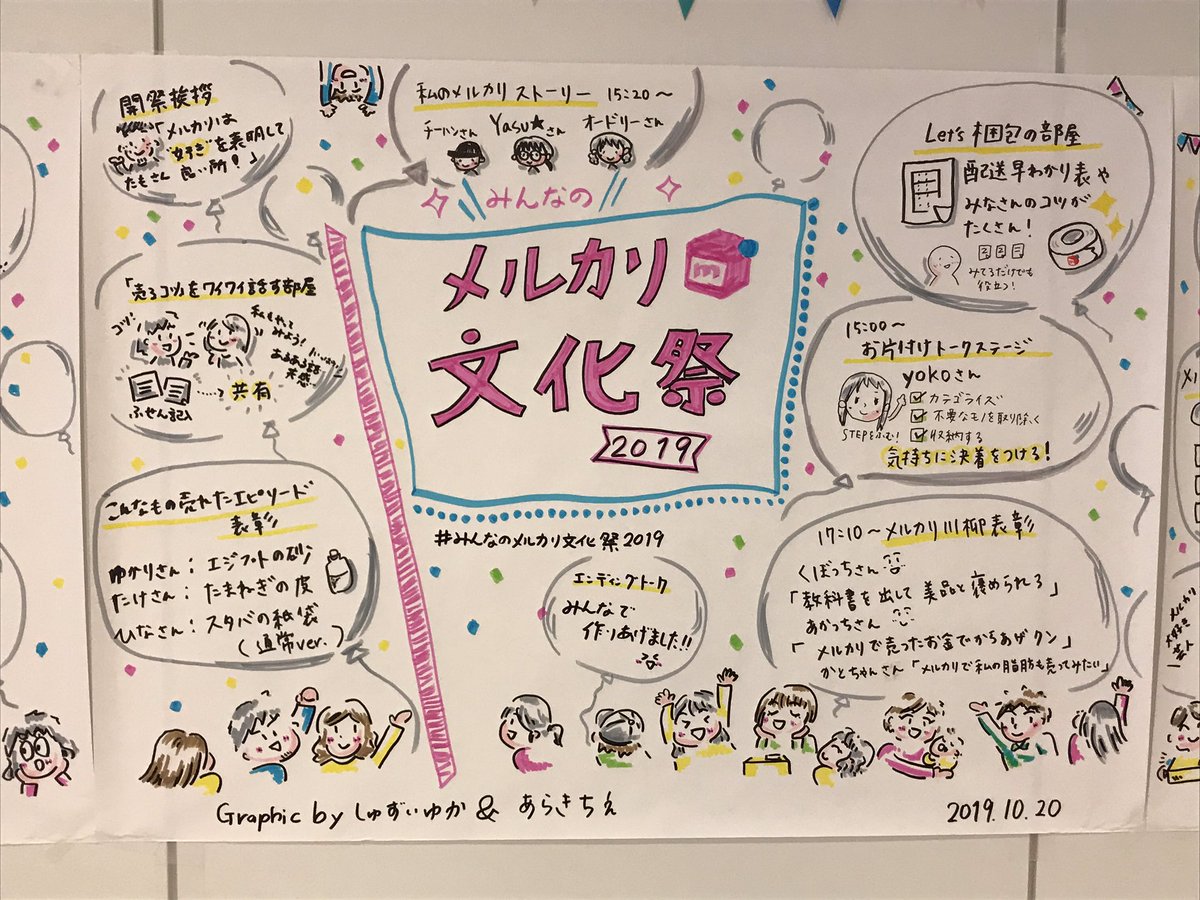 開祭挨拶
「メルカリは
を表明して
たもさん 良い所!」
私のメルカリ ストーリー 15:20〜
チーハンさん Yasu★さん オードリーさん
みんなの
メルカリ
m
文化祭
2019
#みんなのメルカリ文化祭2019
「売るコツ」をワイワイ話す部屋
コツ!
私もやって
みよう!
あるある話
共感
ふせん記入
共有
こんなもの売れたエピソード
表彰
ゆかりさん: エジプトの砂
たけさん: たまねぎの皮
ひなさん: スタバの紙袋
(通常ver.)
Let's 梱包の部屋
配送早わかり表や
みなさんのコツが
たくさん!
みてるだけでも
役立つ!
15:00〜
お片付けトークステージ
yokoさん
カテゴライズ
不要なモノを取り除く
STEPをふむ! 収納する
気持ちに決着をつける!
エンディングトーク
みんなで
作りあげました!!
17:10〜メルカリ川柳表彰
くぼっちさん
「教科書を出して 美品と褒められる」
あかっちさん
「メルカリで売ったお金でからあげクン」
かとちゃんさん「メルカリで私の脂肪も売ってみたい」
メルカリ
大好き
芸人
Graphic by しゅずいゆか & あらきちえ
2019.10.20